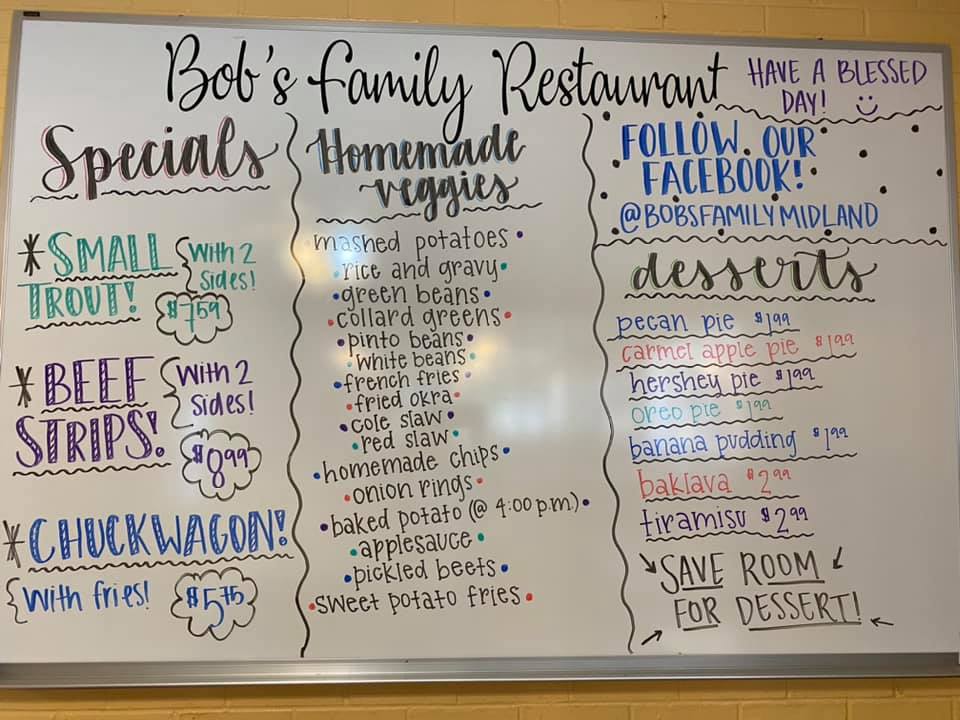 Bob's Family Restaurant
HAVE A BLESSED
DAY!
Specials
*SMALL
TROUT!
With 2
Sides!
$7.59
*BEEF
STRIPS!
With 2
Sides!
$8.99
*CHUCKWAGON!
With fries!
$5.75
Homemade
veggies
mashed potatoes
rice and gravy
green beans
collard greens
pinto beans
white beans
french fries
fried okra
cole slaw
red slaw
homemade chips
onion rings
baked potato (@ 4:00 p.m.)
applesauce
pickled beets
sweet potato fries
FOLLOW OUR
FACEBOOK!
@BOBSFAMILYMIDLAND
desserts
pecan pie $1.99
carmel apple pie $1.99
hershey pie $1.99
oreo pie $1.99
banana pudding $1.99
baklava $2.99
tiramisu $2.99
SAVE ROOM
FOR DESSERT!